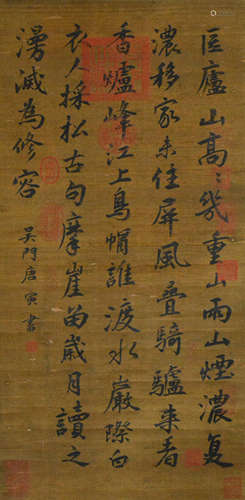 匡廬山高〻幾重山雨山煙濃复
濃移家来住屏風疊騎驢来看
香爐峰江上烏帽誰渡水巖際白
衣人採松古句摩崖留歲月讀之
漫滅為修容
吳門唐寅書